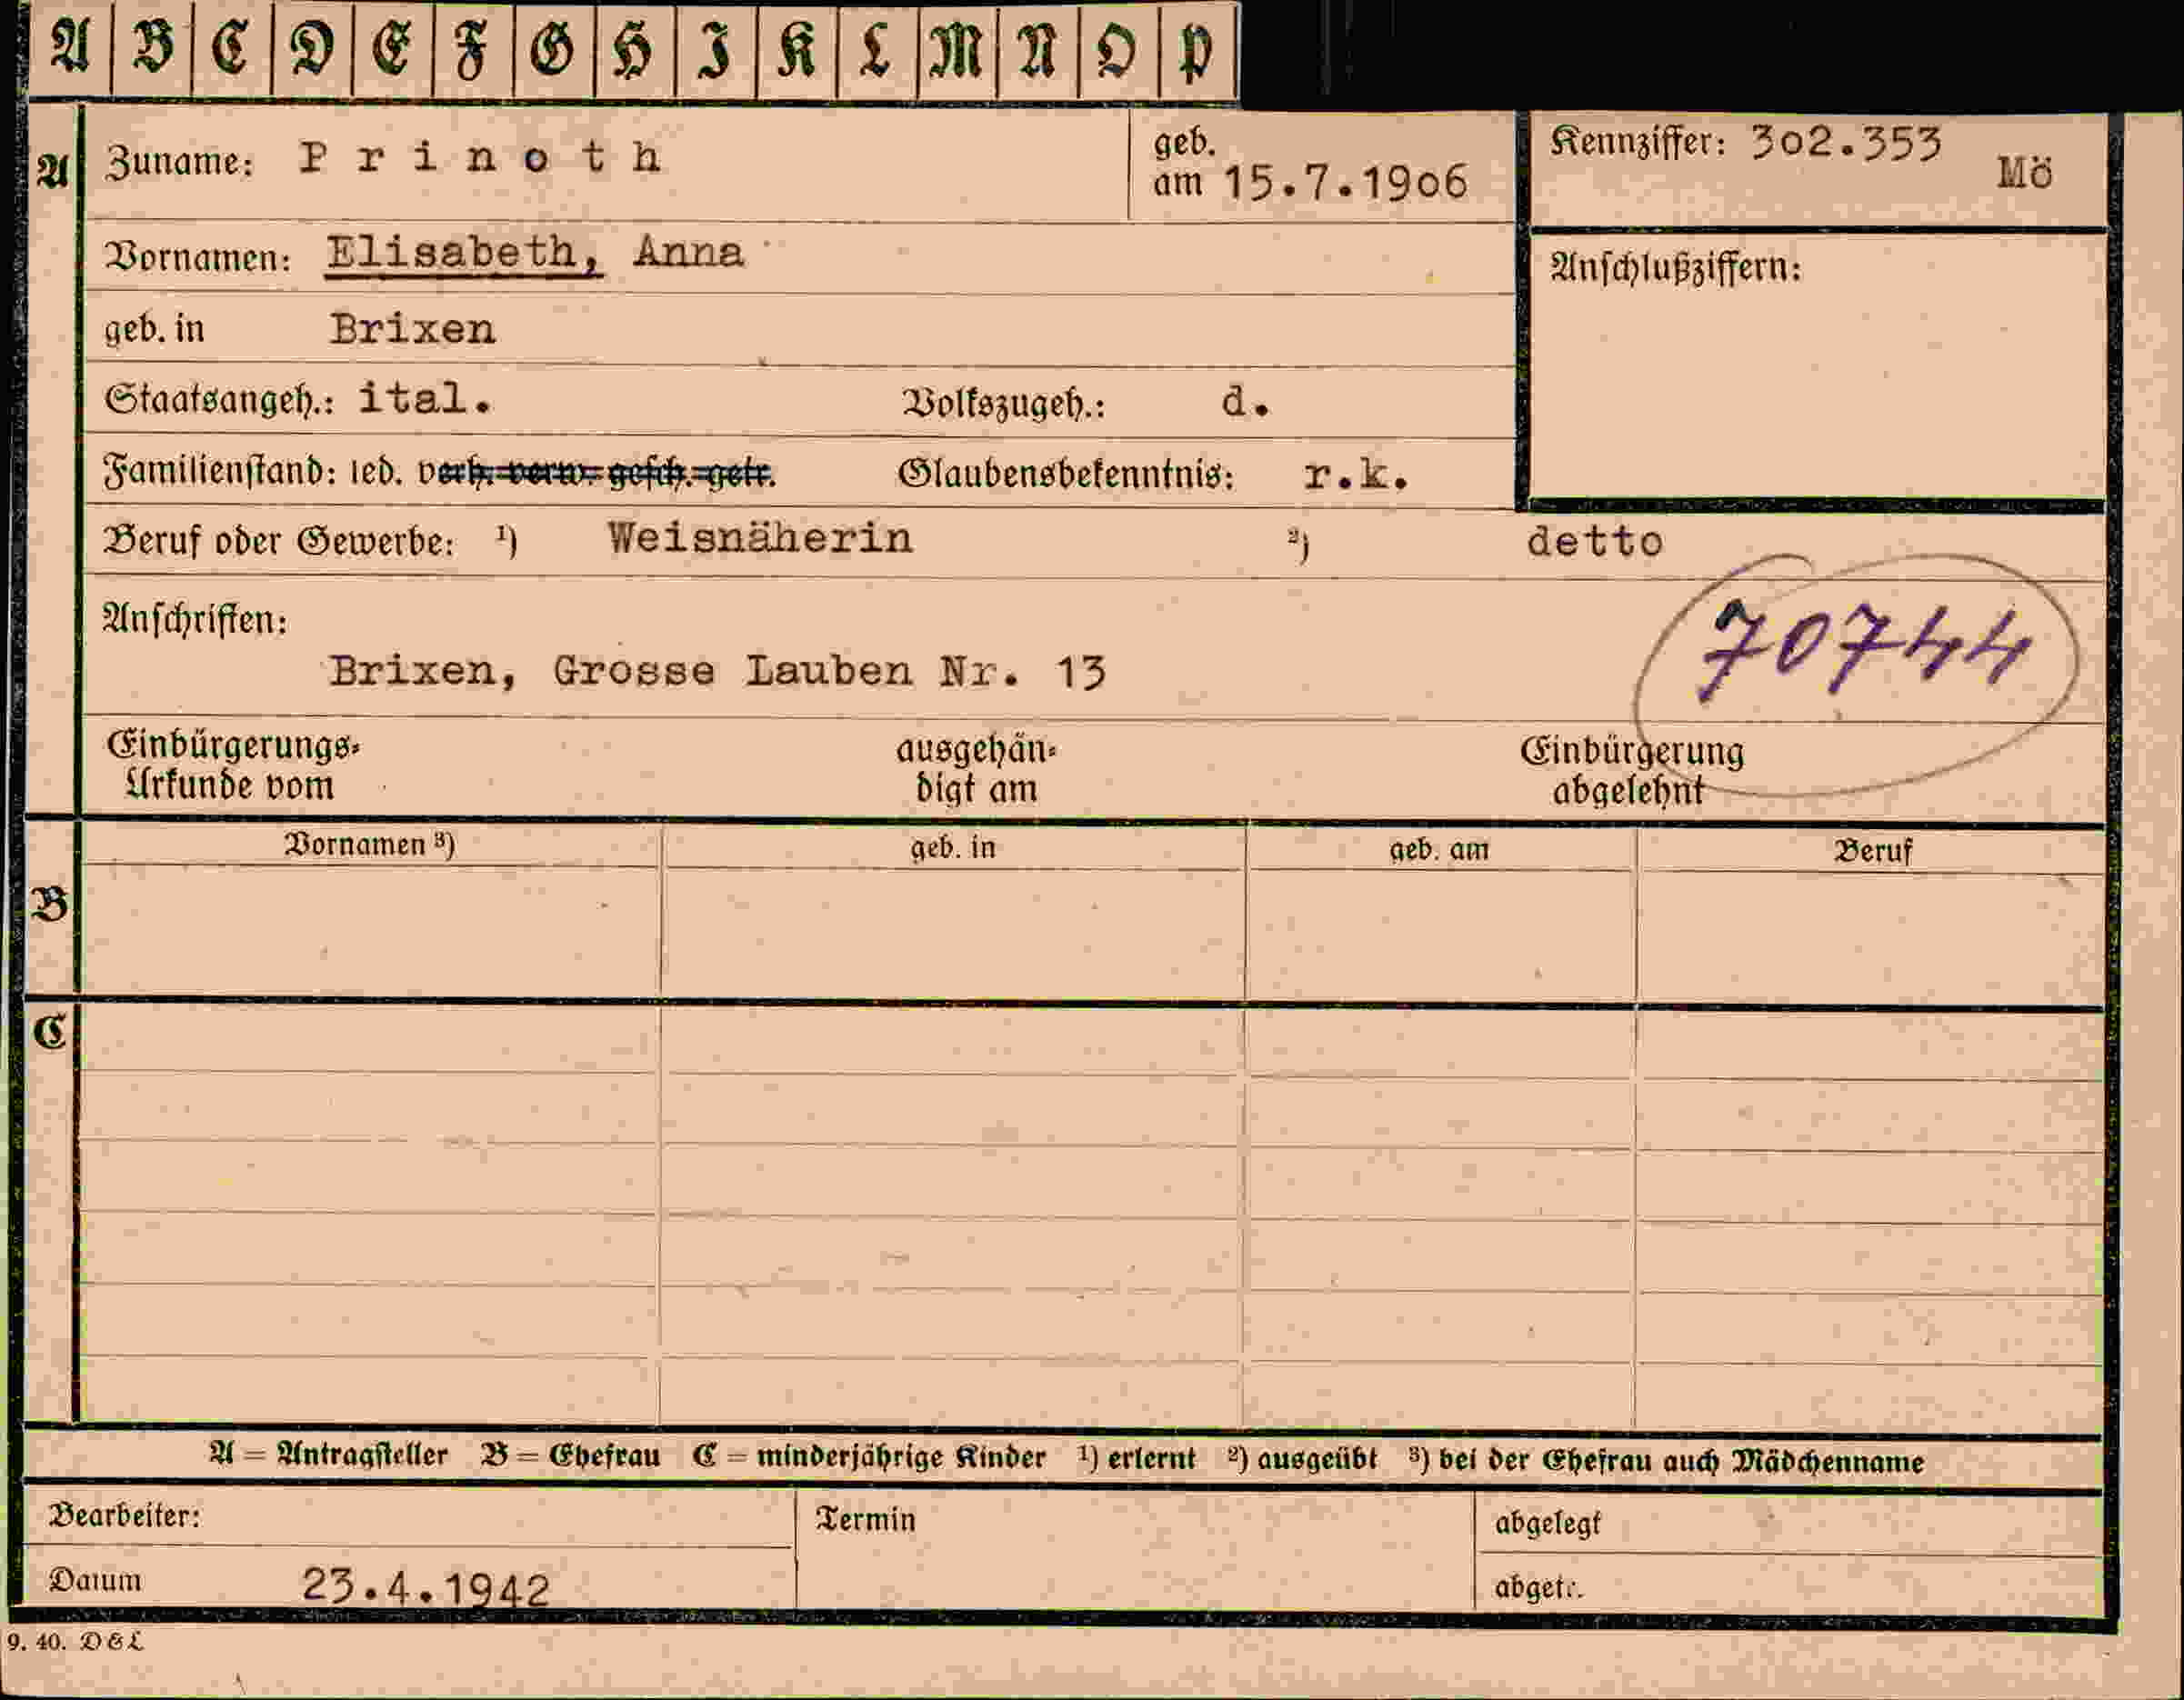 A B C D E F G H I K L M N O P
A Zuname: Prinoth geb. am 15.7.1906 Kennziffer: 302.353 Mö
Vornamen: Elisabeth, Anna Anschlußziffern:
geb. in Brixen
Staatsangeh.: ital. Volkszugeh.: d.
Familienstand: led. verh. verw. gesch. getr. Glaubensbekenntnis: r.k.
Beruf oder Gewerbe: ¹) Weisnäherin ²) detto
Anschriften:
70744
Brixen, Grosse Lauben Nr. 13
Einbürgerungs- ausgehän- Einbürgerung
Urkunde vom digt am abgelehnt
Vornamen ³) geb. in geb. am Beruf
B
C
A = Antragsteller B = Ehefrau C = minderjährige Kinder ¹) erlernt ²) ausgeübt ³) bei der Ehefrau auch Mädchenname
Bearbeiter: Termin abgelegt
Datum 23.4.1942 abgetr.
9. 40. D&L